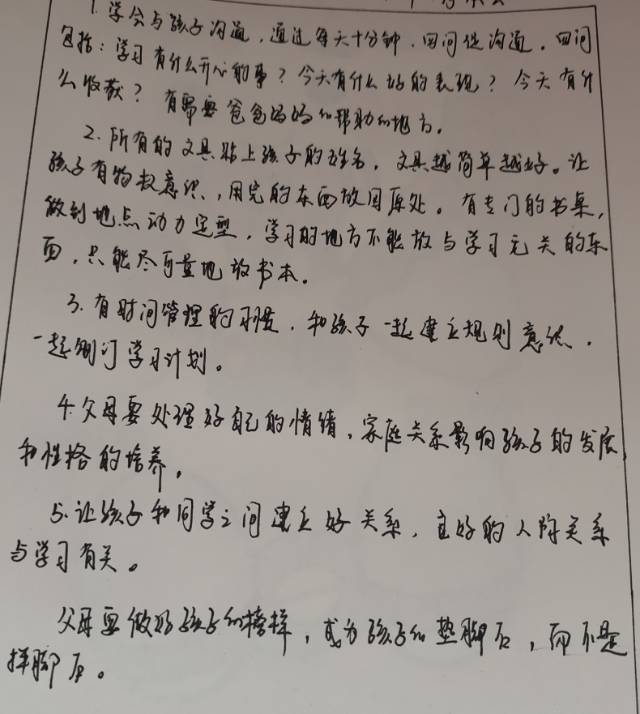 1. 学会与孩子沟通，通过每天十分钟，四问促沟通，四问
包括：学习有什么开心的事？今天有什么好的表现？今天有什
么收获？有需要爸爸妈妈的帮助的地方。
2. 所有的文具贴上孩子的姓名，文具越简单越好。让
孩子有物权意识，用完的东西放回原处。有专门的书桌，
做到地点动力定型，学习的地方不能放与学习无关的东
西，只能尽可量地放书本。
3. 有时间管理的习惯，和孩子一起建立规则意识，
一起制订学习计划。
4. 父母要处理好自己的情绪，家庭关系影响孩子的发展
和性格的培养。
5. 让孩子和同学之间建立好关系，良好的人际关系
与学习有关。
父母要做好孩子的榜样，成为孩子的垫脚石，而不是
拌脚石。